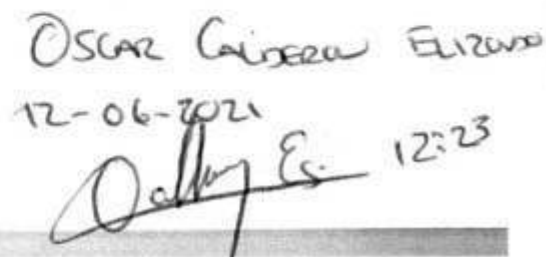 OSCAR CALDERON ELIZONDO
12-06-2021
12:23